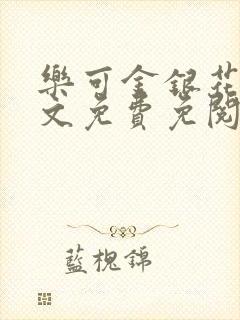 樂可金銀花
文免費免閱
藍槐錦